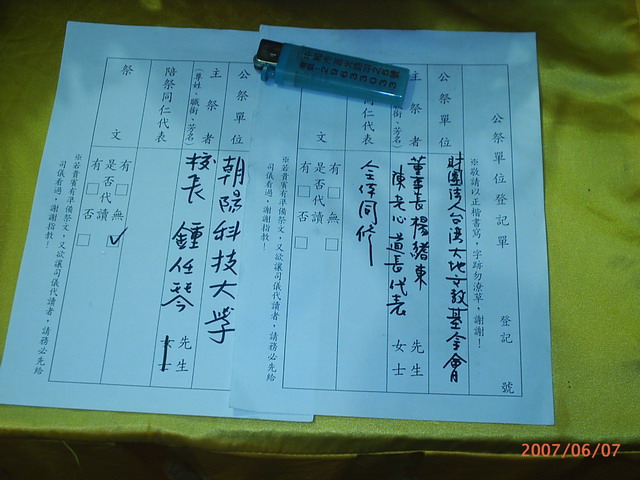 公祭單位登記單
登記　號
※敬請以正楷書寫，字跡勿潦草，謝謝！
公祭單位
財團法人台灣大地文教基金會
主祭者
(尊姓、職銜、芳名)
董事長 楊緒東
陳老心 道長 代表
先生
女士
陪祭同仁代表
全体同修
文
有 無
是否代讀
有 否
※若貴賓有準備祭文，又欲讓司儀代讀者，請務必先給
司儀看過，謝謝指教！
公祭單位
朝陽科技大學
主祭者
(尊姓、職銜、芳名)
校長 鍾任琴
先生
女士
陪祭同仁代表
祭文
有 無 ✓
是否代讀
有 否
※若貴賓有準備祭文，又欲讓司儀代讀者，請務必先給
司儀看過，謝謝指教！
29633033
2007/06/07